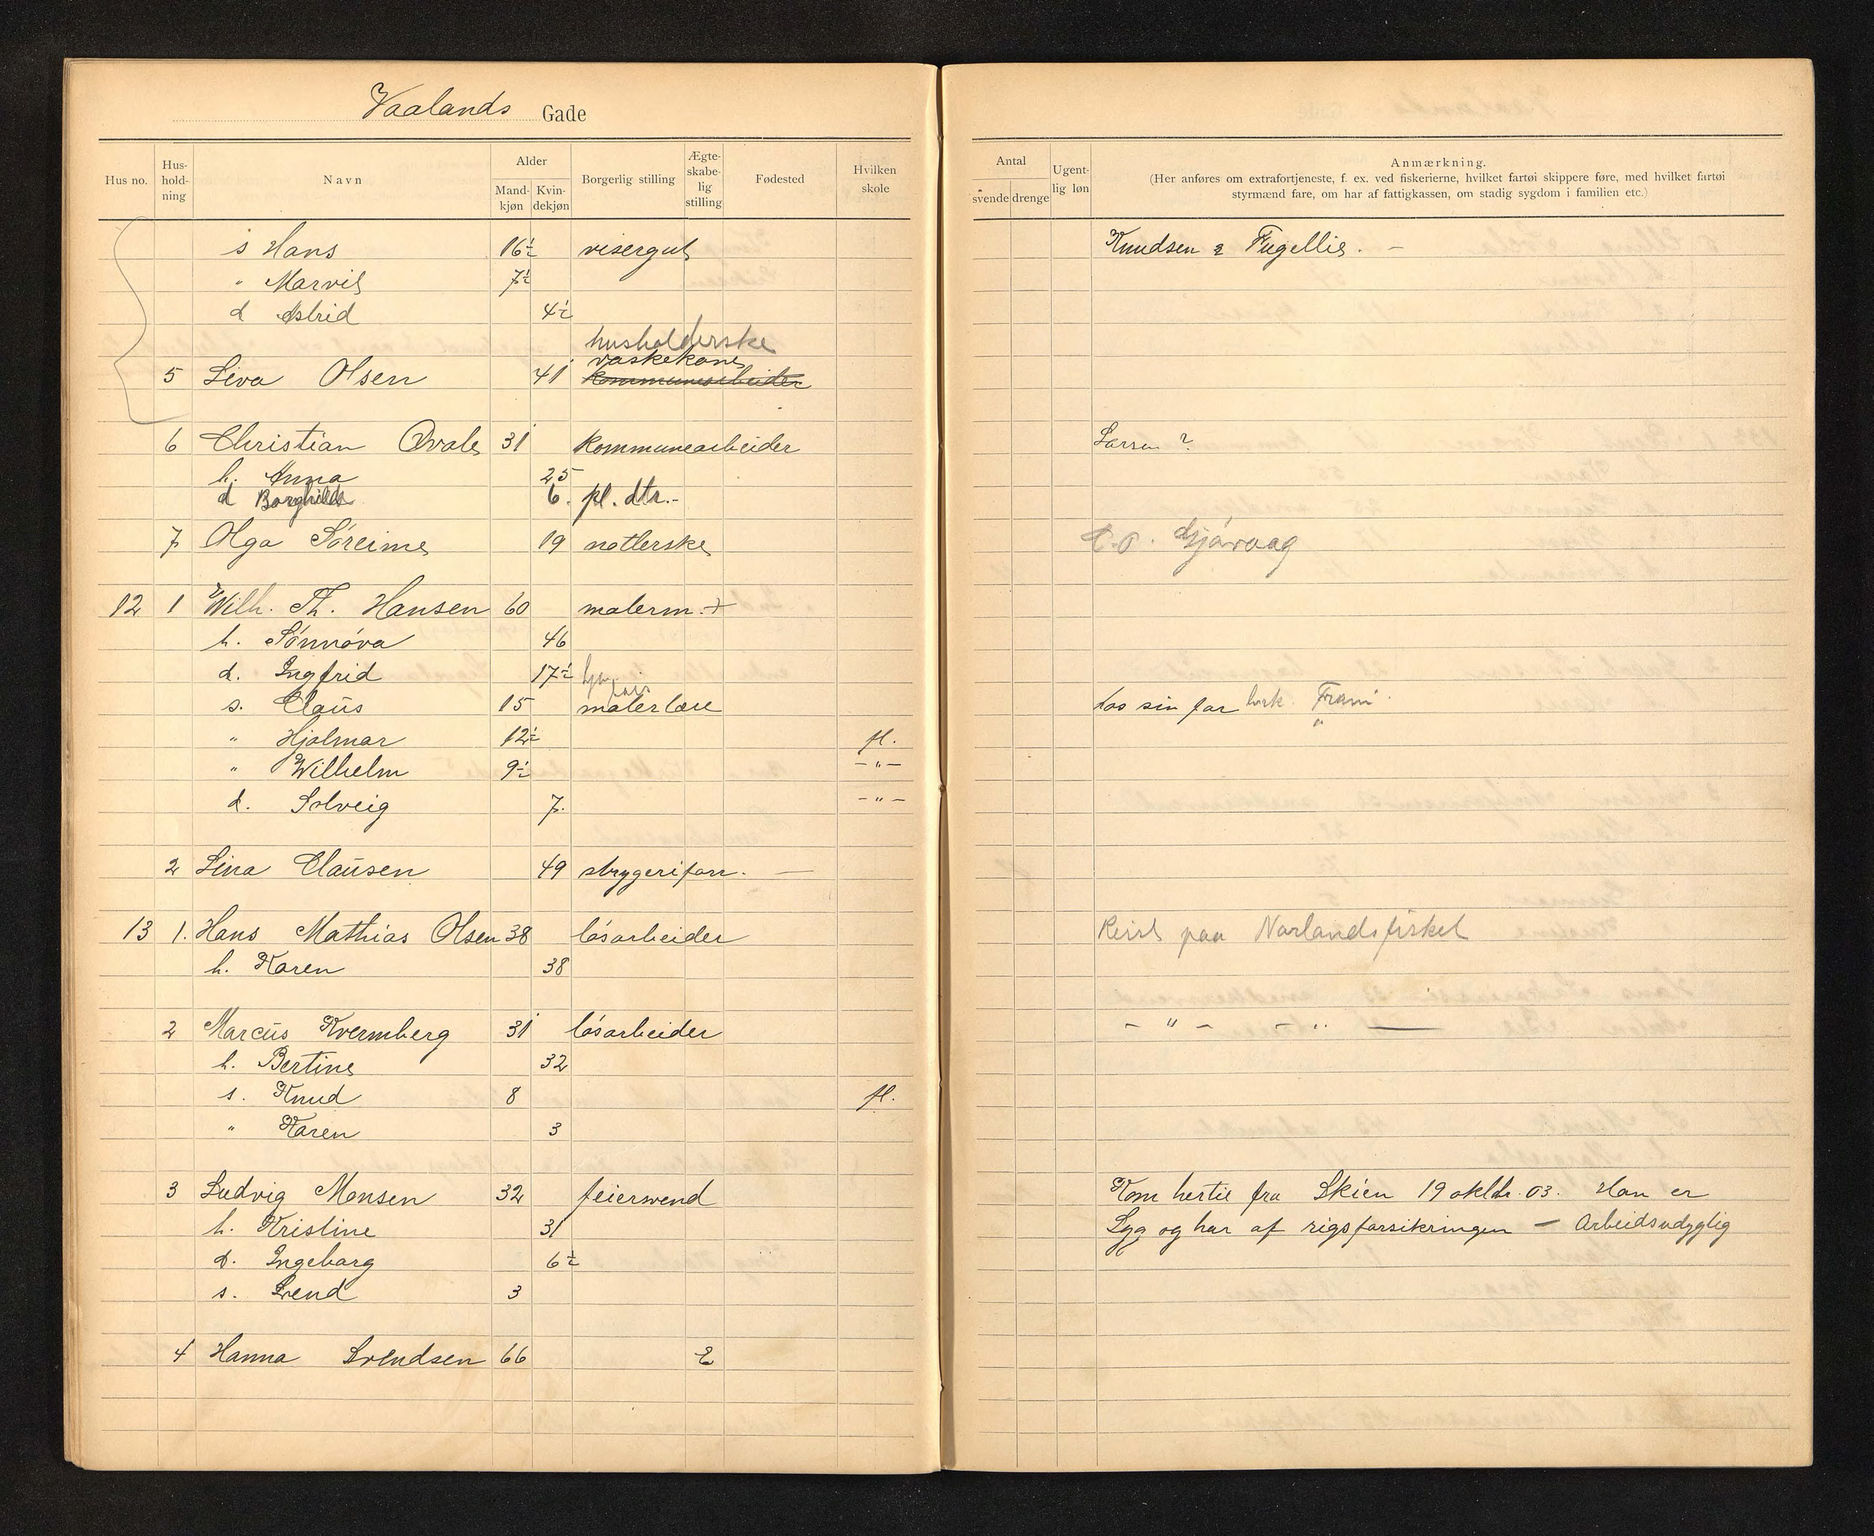 Vaalands Gade
Hus no. Hus-hold-ning Navn Alder Mand-kjøn Kvin-dekjøn Borgerlig stilling Ægte-skabe-lig stilling Fødested Hvilken skole Antal svende drenge Ugent-lig løn Anmærkning.
(Her anføres om extrafortjeneste, f. ex. ved fiskerierne, hvilket fartøi skippere føre, med hvilket fartøi
styrmænd fare, om har af fattigkassen, om stadig sygdom i familien etc.)
s Hans 16½ visergut Knudsen & Fugellie. —
" Marvil 7½
d Astrid 4½
husholderske
vaskekone
5 Lina Olsen 41 kommunearbeider
6 Christian Qvale 31 kommunearbeider Larsen ?
h. Anna 25
d Borghild 6. pl. dtr.-
7 Olga Söreime 19 natlerske C.O. Gjövaag
12 1 Wilh. Th. Hansen 60 malerm. +
h. Sönnöva 46
d. Ingfrid 17½
s. Claus 15 malerlære hos sin far Fram
" Hjalmar 12½ fl. "
" Wilhelm 9½ -"-
d. Solveig 7. -"-
2 Lina Clausen 49 strygeriforr. —
13 1. Hans Mathias Olsen 38 lösarbeider Reist paa Norlandsfisket
h. Karen 38
2 Marcus Kvermberg 31 lösarbeider - " - - " —
h. Bertine 32
s. Knud 8 fl.
" Karen 3
3 Ludvig Monsen 32 feiersvend Kom hertil fra Skien 19 oktbr. 03. Han er
h. Kristine 31 Syg og har af rigsforsikringen — Arbeidsudyglig
d. Ingeborg 6½
s. Svend 3
4 Hanna Svendsen 66 E